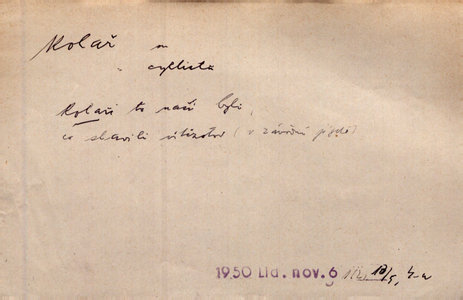 Kolař m
„ cyklista
Kolaři to naši byli,
co slavili vítězství (v závodní jízdě)
1950 Lid. nov. 6 13/5, 4-a